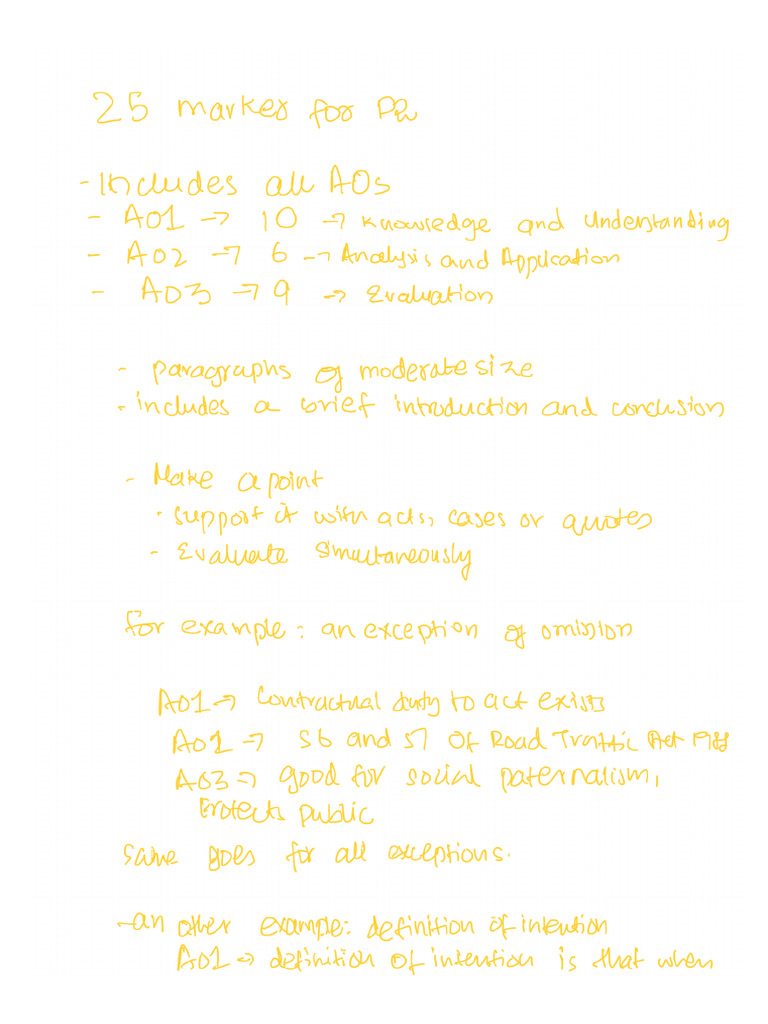 25 marker for P2
- Includes all AOs
- AO1 → 10 → Knowledge and Understanding
- AO2 → 6 → Analysis and Application
- AO3 → 9 → Evaluation
- paragraphs of moderate size
- includes a brief introduction and conclusion
- Make a point
- support it with acts, cases or quotes
- Evaluate simultaneously
for example: an exception of omission
AO1 → Contractual duty to act exists
AO1 → S6 and S7 of Road Traffic Act 1988
AO3 → good for social paternalism,
Protects public
Same goes for all exceptions.
- an other example: definition of intention
AO1 → definition of intention is that when